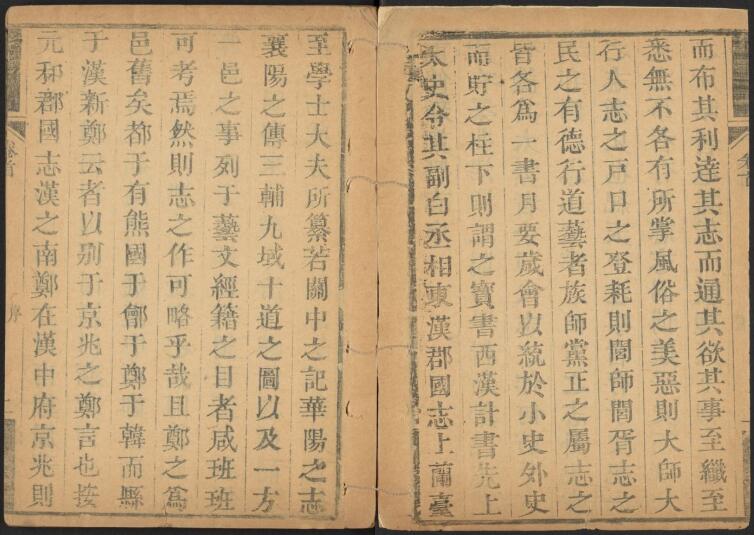 而布其利達其志而通其欲其事至纖至
悉無不各有所掌風俗之美惡則大師大
行人志之戶口之登耗則閭師閭胥志之
民之有德行道藝者族師黨正之屬志之
皆各爲一書月要歲會以統於小史外史
而貯之柱下則謂之寶書西漢計書先上
太史令其副白丞相東漢郡國志上蘭臺
至學士大夫所纂若關中之記華陽之志
襄陽之傳三輔九域十道之圖以及一方
一邑之事列于藝文經籍之目者咸班班
可考焉然則志之作可略乎哉且鄭之爲
邑舊矣都于有熊國于鄶于鄭于韓而縣
于漢新鄭云者以别于京兆之鄭言也按
元和郡國志漢之南鄭在漢中府京兆則
序